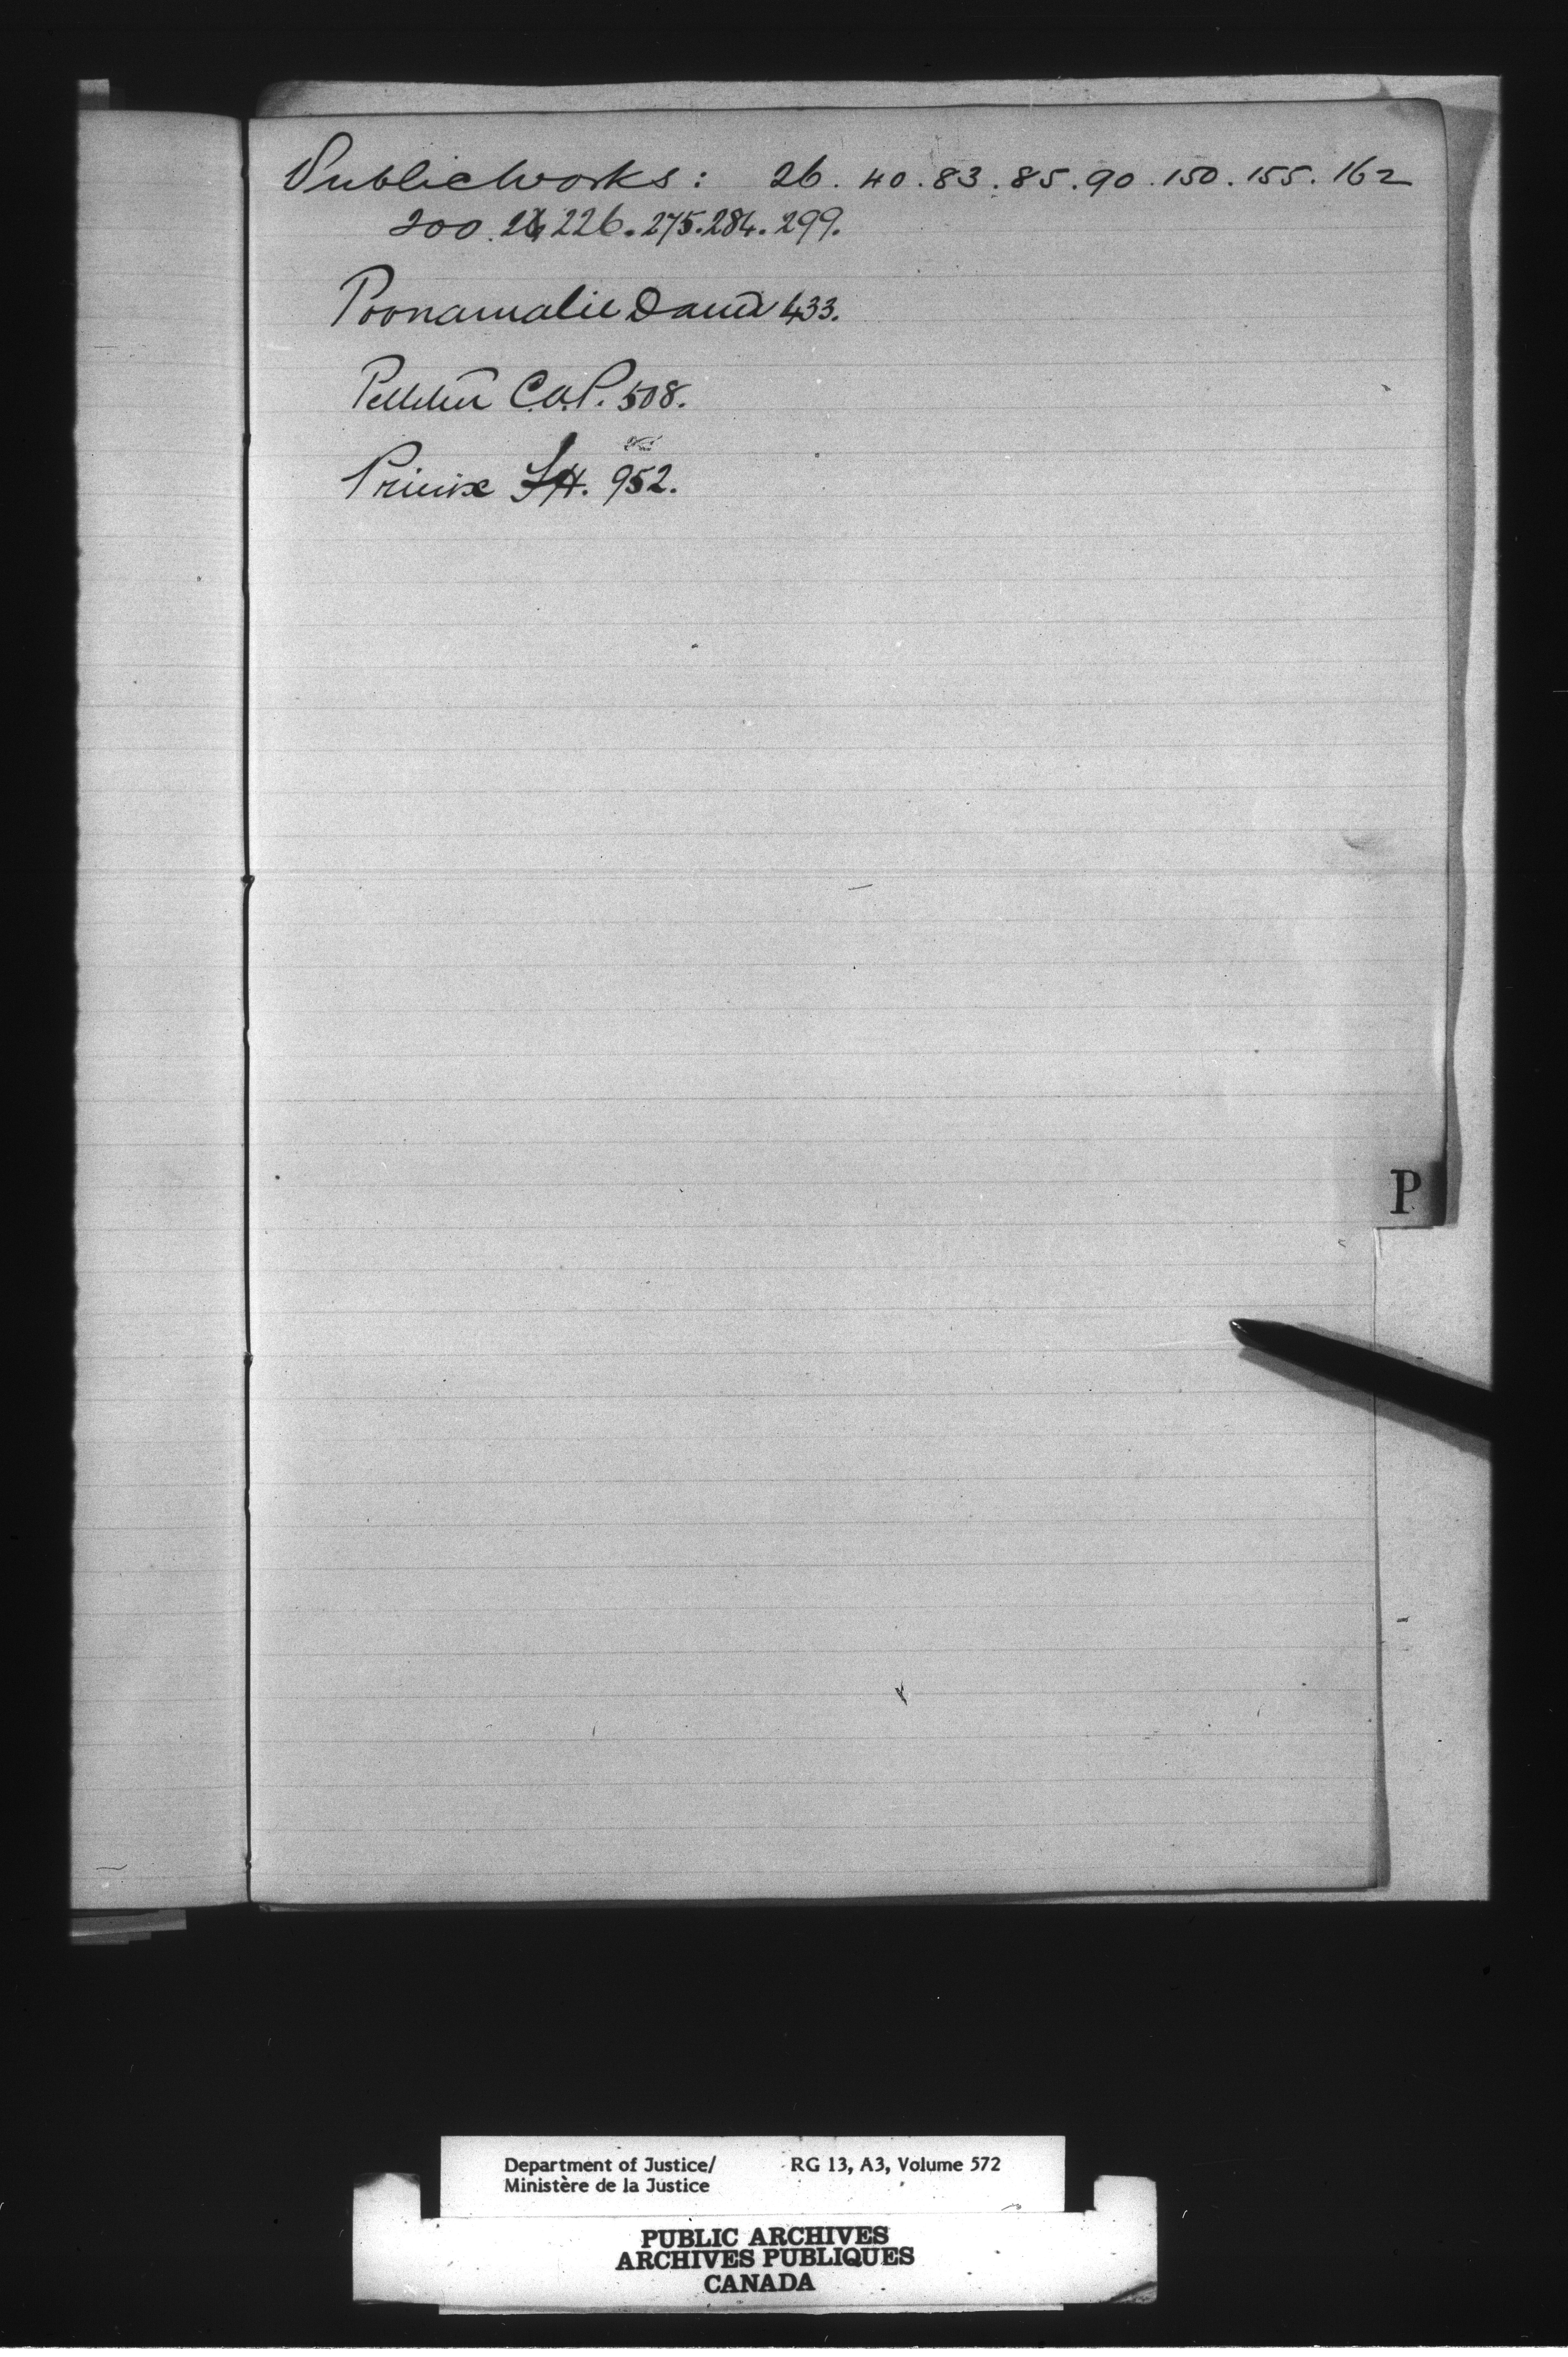 Public Works: 26. 40. 83. 85. 90. 150. 155. 162
200. 226. 275. 284. 299.
Poonamalie Dam 433.
Pelletier C.A.P. 508.
952.
P
Department of Justice/ RG 13, A3, Volume 572
Ministère de la Justice
PUBLIC ARCHIVES
ARCHIVES PUBLIQUES
CANADA